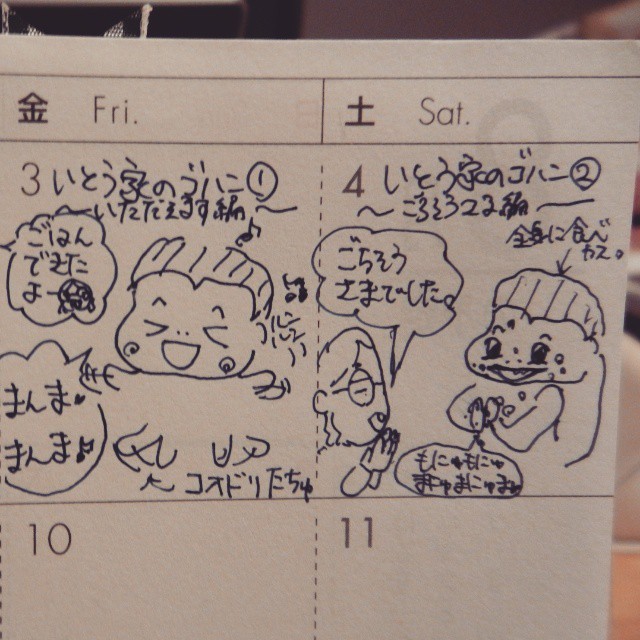 金 Fri.
土 Sat.
3 いとう家のゴハン①
いただきます編
ごはん
できた
よー
まんま
まんま♪
コオドリたちゅ
4 いとう家のゴハン②
〜ごちそうさま編〜
全身に食べ
カス。
ごちそう
さまでした。
もにゅもにゅ
まにゅまにゅ
10
11